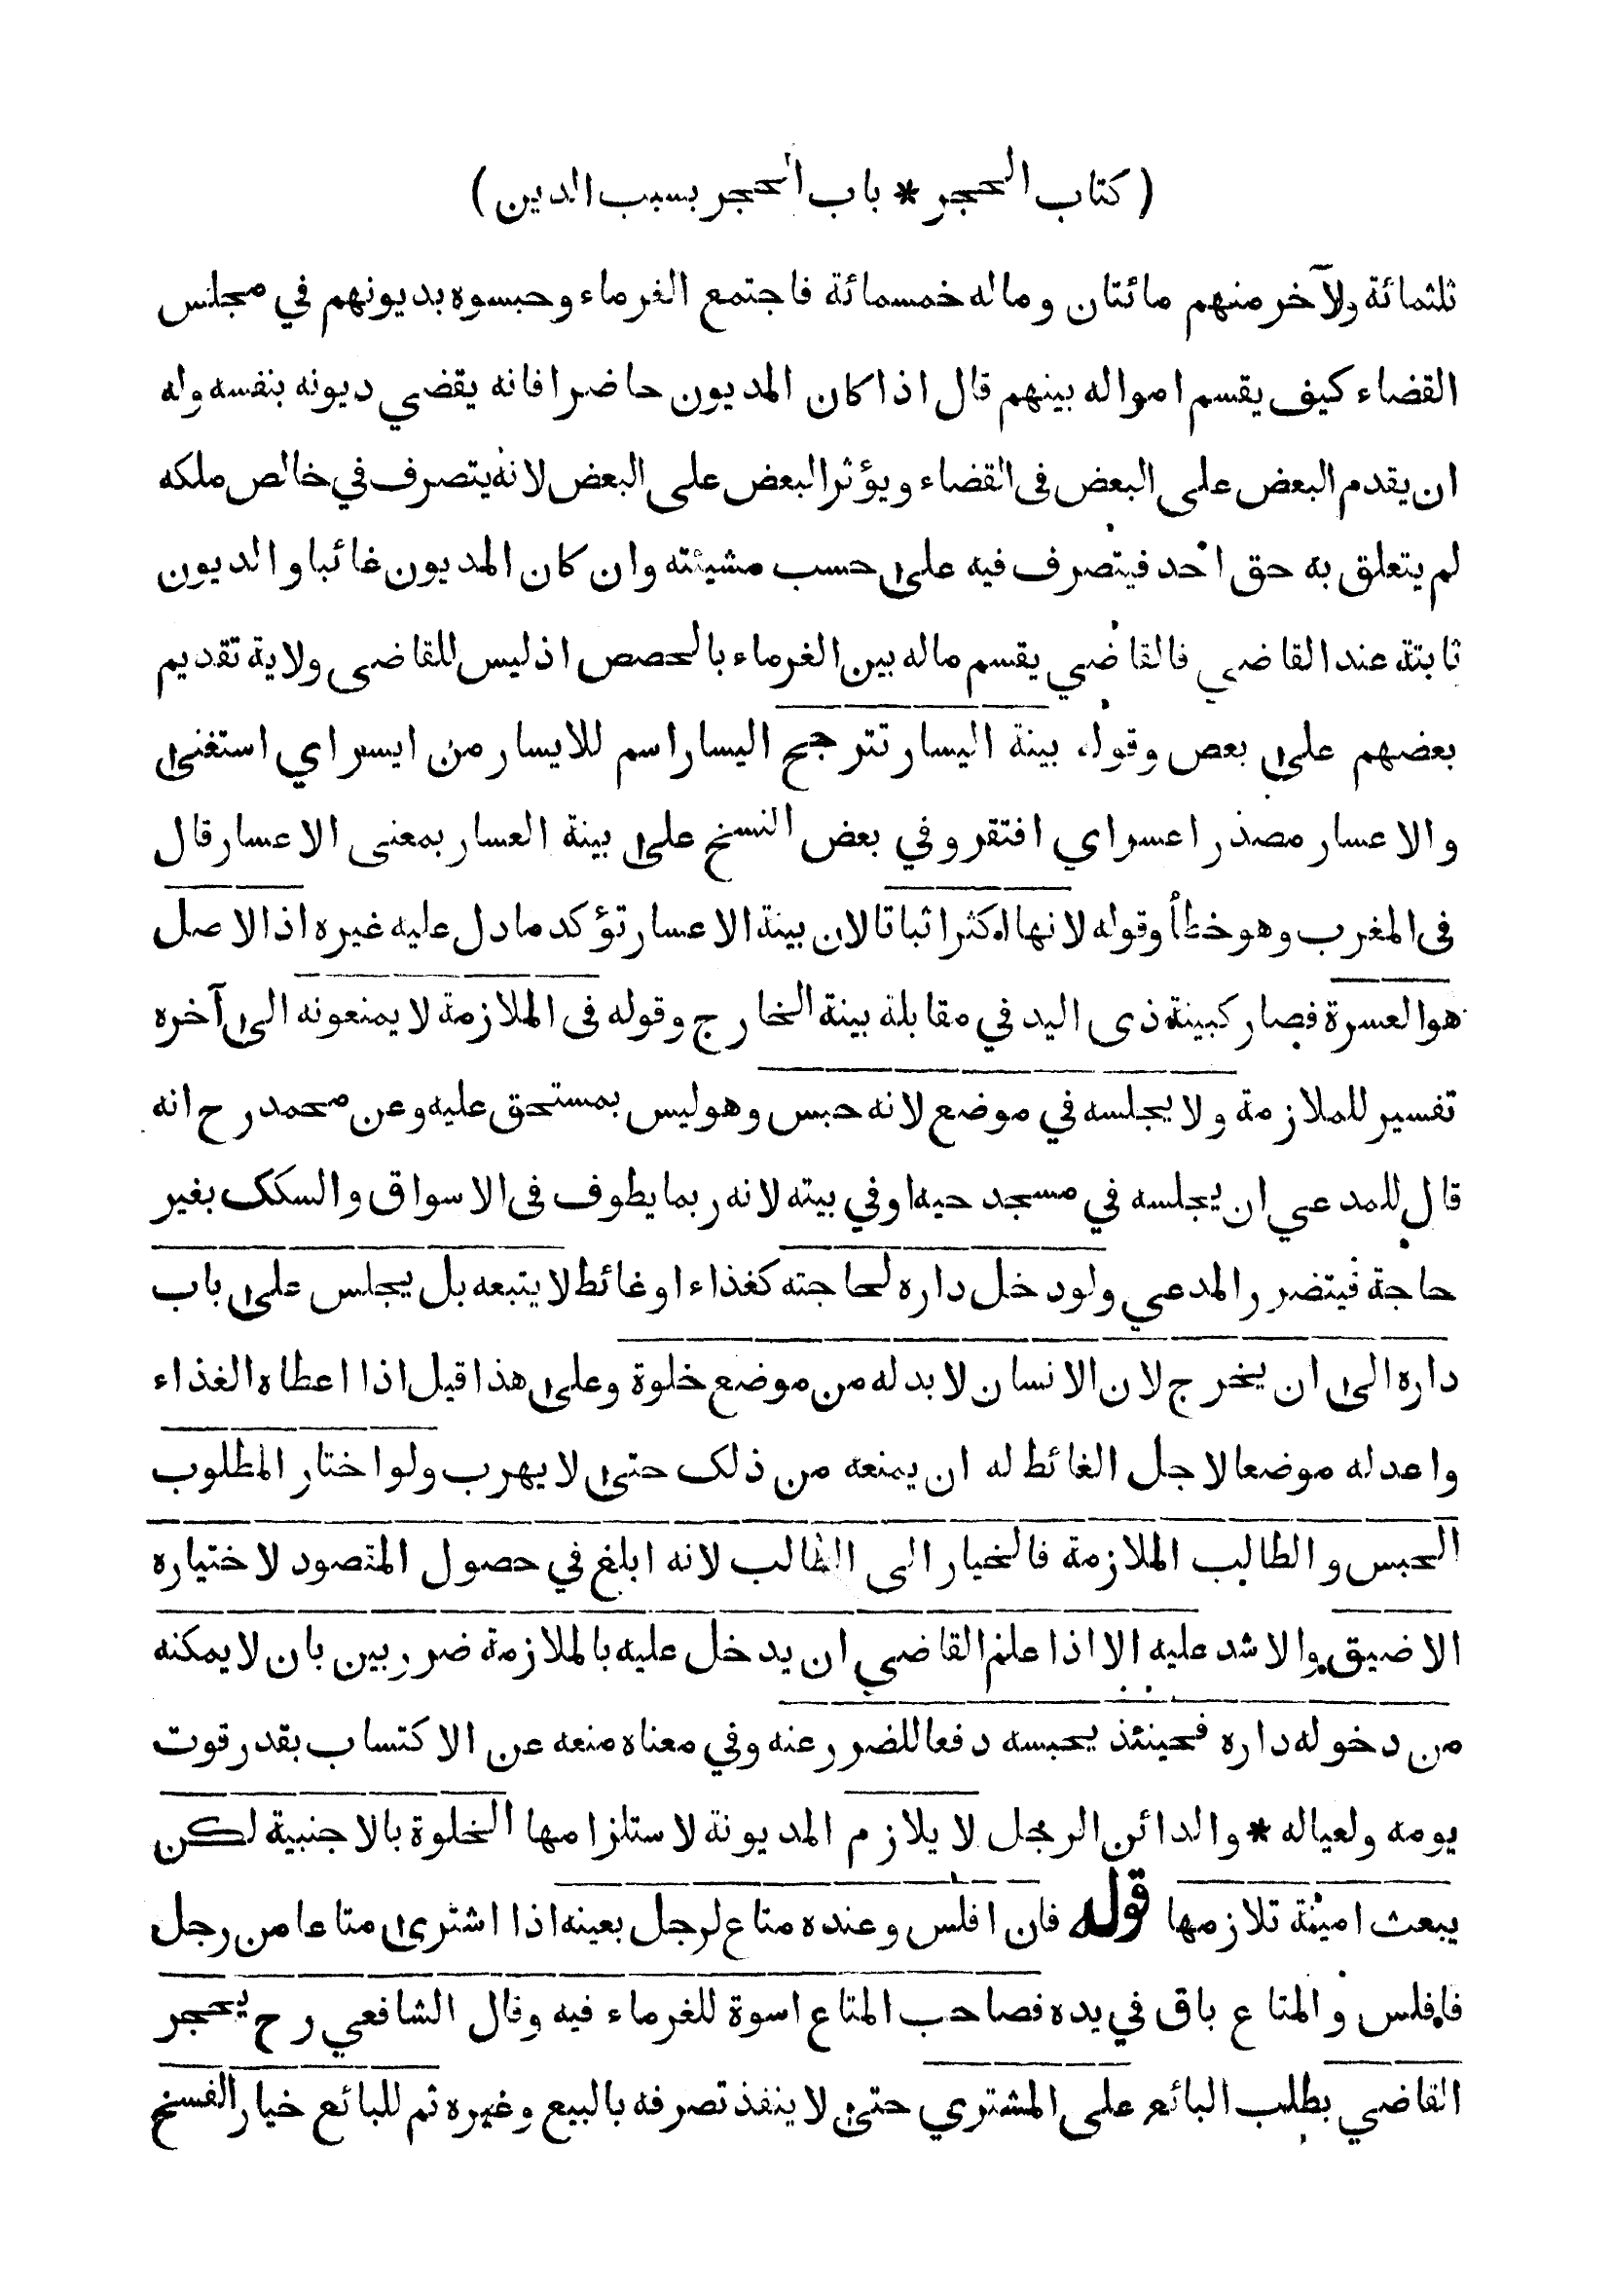 ( كتاب الحجر * باب الحجر بسبب الدين )
ثلثمائة ولآخر منهم مائتان وماله خمسمائة فاجتمع الغرماء وحبسوه بديونهم في مجلس
القضاء كيف يقسم امواله بينهم قال اذا كان المديون حاضرا فانه يقضي ديونه بنفسه وله
ان يقدم البعض على البعض فى القضاء ويؤثر البعض على البعض لانه يتصرف في خالص ملكه
لم يتعلق به حق احد فيتصرف فيه على حسب مشيئته وان كان المديون غائبا والديون
ثابتة عند القاضي فالقاضي يقسم ماله بين الغرماء بالحصص اذ ليس للقاضى ولاية تقديم
بعضهم على بعض وقوله بينة اليسار تترجح اليسار اسم للايسار من ايسر اي استغنى
والاعسار مصدر اعسر اي افتقر وفي بعض النسخ على بينة العسار بمعنى الاعسار قال
فى المغرب وهو خطأ وقوله لانها اكثر اثباتا لان بينة الاعسار تؤكد ما دل عليه غيره اذ الاصل
هو العسرة فصار كبينة ذى اليد في مقابلة بينة الخارج وقوله فى الملازمة لا يمنعونه الى آخره
تفسير للملازمة ولا يجلسه في موضع لانه حبس وهو ليس بمستحق عليه وعن محمد رح انه
قال للمدعي ان يجلسه في مسجد حيه او في بيته لانه ربما يطوف فى الاسواق والسكك بغير
حاجة فيتضرر المدعي ولو دخل داره لحاجته كغذاء او غائط لا يتبعه بل يجلس على باب
داره الى ان يخرج لان الانسان لا بد له من موضع خلوة وعلى هذا قيل اذا اعطاه الغذاء
واعد له موضعا لاجل الغائط له ان يمنعه من ذلك حتى لا يهرب ولو اختار المطلوب
الحبس والطالب الملازمة فالخيار الى الطالب لانه ابلغ في حصول المقصود لاختياره
الاضيق والاشد عليه الا اذا علم القاضي ان يدخل عليه بالملازمة ضرر بين بان لا يمكنه
من دخوله داره فحينئذ يحبسه دفعا للضرر عنه وفي معناه منعه عن الاكتساب بقدر قوت
يومه ولعياله * والدائن الرجل لا يلازم المديونة لاستلزامها الخلوة بالاجنبية لكن
يبعث امينة تلازمها قوله فان افلس وعنده متاع لرجل بعينه اذا اشترى متاعا من رجل
فافلس والمتاع باق في يده فصاحب المتاع اسوة للغرماء فيه وقال الشافعي رح يحجر
القاضي بطلب البائع على المشتري حتى لا ينفذ تصرفه بالبيع وغيره ثم للبائع خيار الفسخ